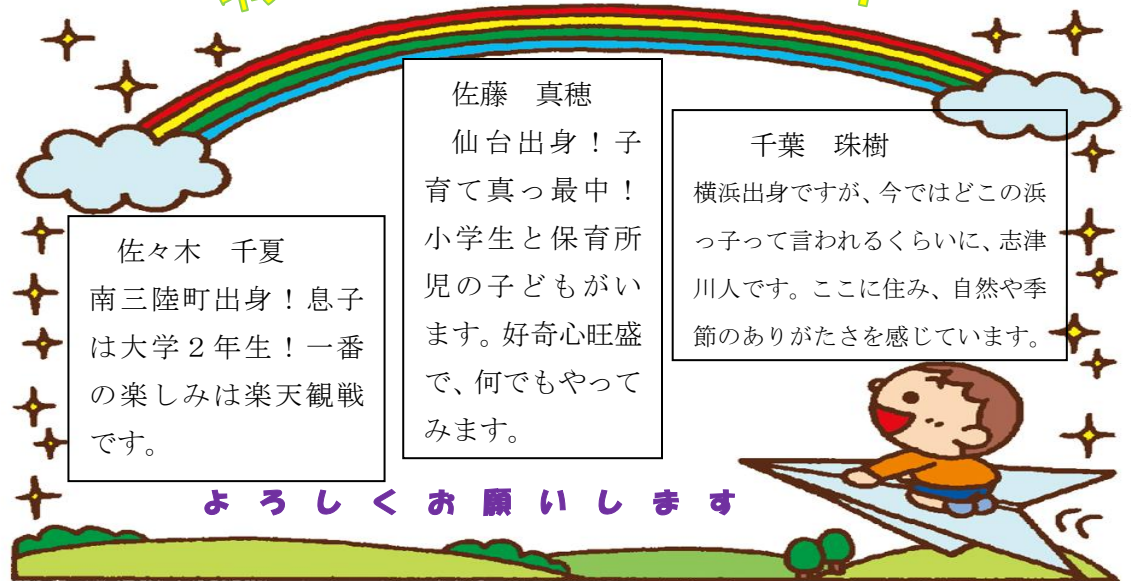 佐々木　千夏
南三陸町出身！息子
は大学２年生！一番
の楽しみは楽天観戦
です。
佐藤　真穂
仙台出身！子
育て真っ最中！
小学生と保育所
児の子どもがい
ます。好奇心旺盛
で、何でもやって
みます。
千葉　珠樹
横浜出身ですが、今ではどこの浜
っ子って言われるくらいに、志津
川人です。ここに住み、自然や季
節のありがたさを感じています。
よろしくお願いします